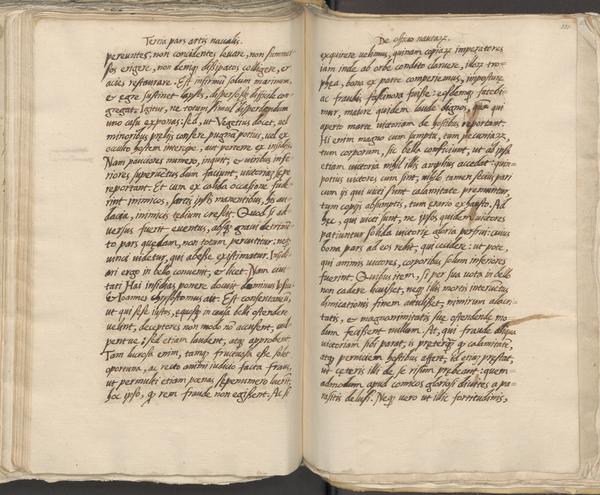 Tertia pars artis naualis.
pereuntes, non concidentes leuare, non summer
sos erigere, non demq; dissipatos colligere, &
acies restaurare. Est infirmu solum marinum,
& egre sustinet lapsos, dispersosq; difficile con
gregat. Igitur, ne totum simul disperdendum
uno casu exponas: sed, ut Vegetius docet, uel
minoribus prelijs confere pugna potius, uel ex
occulto hostem intercipe, aut perterre ex insidijs.
Nam pauciores numero, inquit, & uiribus infe
riores superuentus dum faciunt, uictoria sepe
reportant. Et cum ex calida occasione fude
rint inimicos, fortis ipsis manentibus, his au
dacia, inimicis tedium crescit. Quod si ad
uersus fuerit euentus, absq; graui detrime
to pars quedam, non totem peruertitur: neq;
uinci uidetur, qui abesse existimatur. Insidi
ari ergo in bello conuenit, & licet. Nam ciui
tati Hai insidias ponere docuit dominus
& Ioannes Chrisostomus ait. Est consentaneu,
ut qui sese iustos, equosq; in causa belli ostendere
uelint, deceptores non modo no accusent, uel
sed etiam laudent, atq; approbent.
Tam lucrosa enim, tamq; fructuosa esse solet
oportuna, ac recto animi iudicio facta fraus,
ut permulti etiam poenas sepenumero luerit
hoc ipso, q rem fraude non egissent. At si
De officio nautaz.
exquirere uelimus, quinam copiaz imperatores
iam inde ab orbe condito claruere, idoz tro=
phea, bona ex parte comperiemus, imposture
ac fraudis facinora fuisse: eosdemq; fatebi
mur, maiore quidem laude dignos, qua qui
aperto marte uictoriam de hostibus reportant.
Hi enim magno cum sumptu, tam pecuniaz,
tum corporum, sic bello conficiunt, ut ad ipsa
etiam uictoria nihil illis amplius accedat: quin
potius uictores cum sint, nihil tamen secius pari
cum ijs qui uicti sunt calamitate premuntur,
tum copijs absumptis, tum erario exhausto. Ad
hec, qui uicti sunt, ne ipsos quidem uictores
patiuntur solida uictorie gloria perfrui: cuius
bona pars ad eos redit, qui cecidere: ut pote,
qui animis uictores, corporibus solum inferiores
fuerint. Quibus item, si per sua uota in bellis
non cadere licuisset, neq; illis mortis interuetus
dimicationis finem attulisset, nimirum alacri=
tatis, & magnanimitatis sue ostendende mo=
dum fecissent nullum. At, qui fraude aliqua
uictoriam sibi parat, is preterq q calamitate,
atq; perniciem hostibus affert, id etia prestat,
ut ceteris illi de se risum prebeant: quem=
admodum apud comicos gloriosi diuites a pa=
rasitis delusi. Neq; uero ut illic fortitudinis,